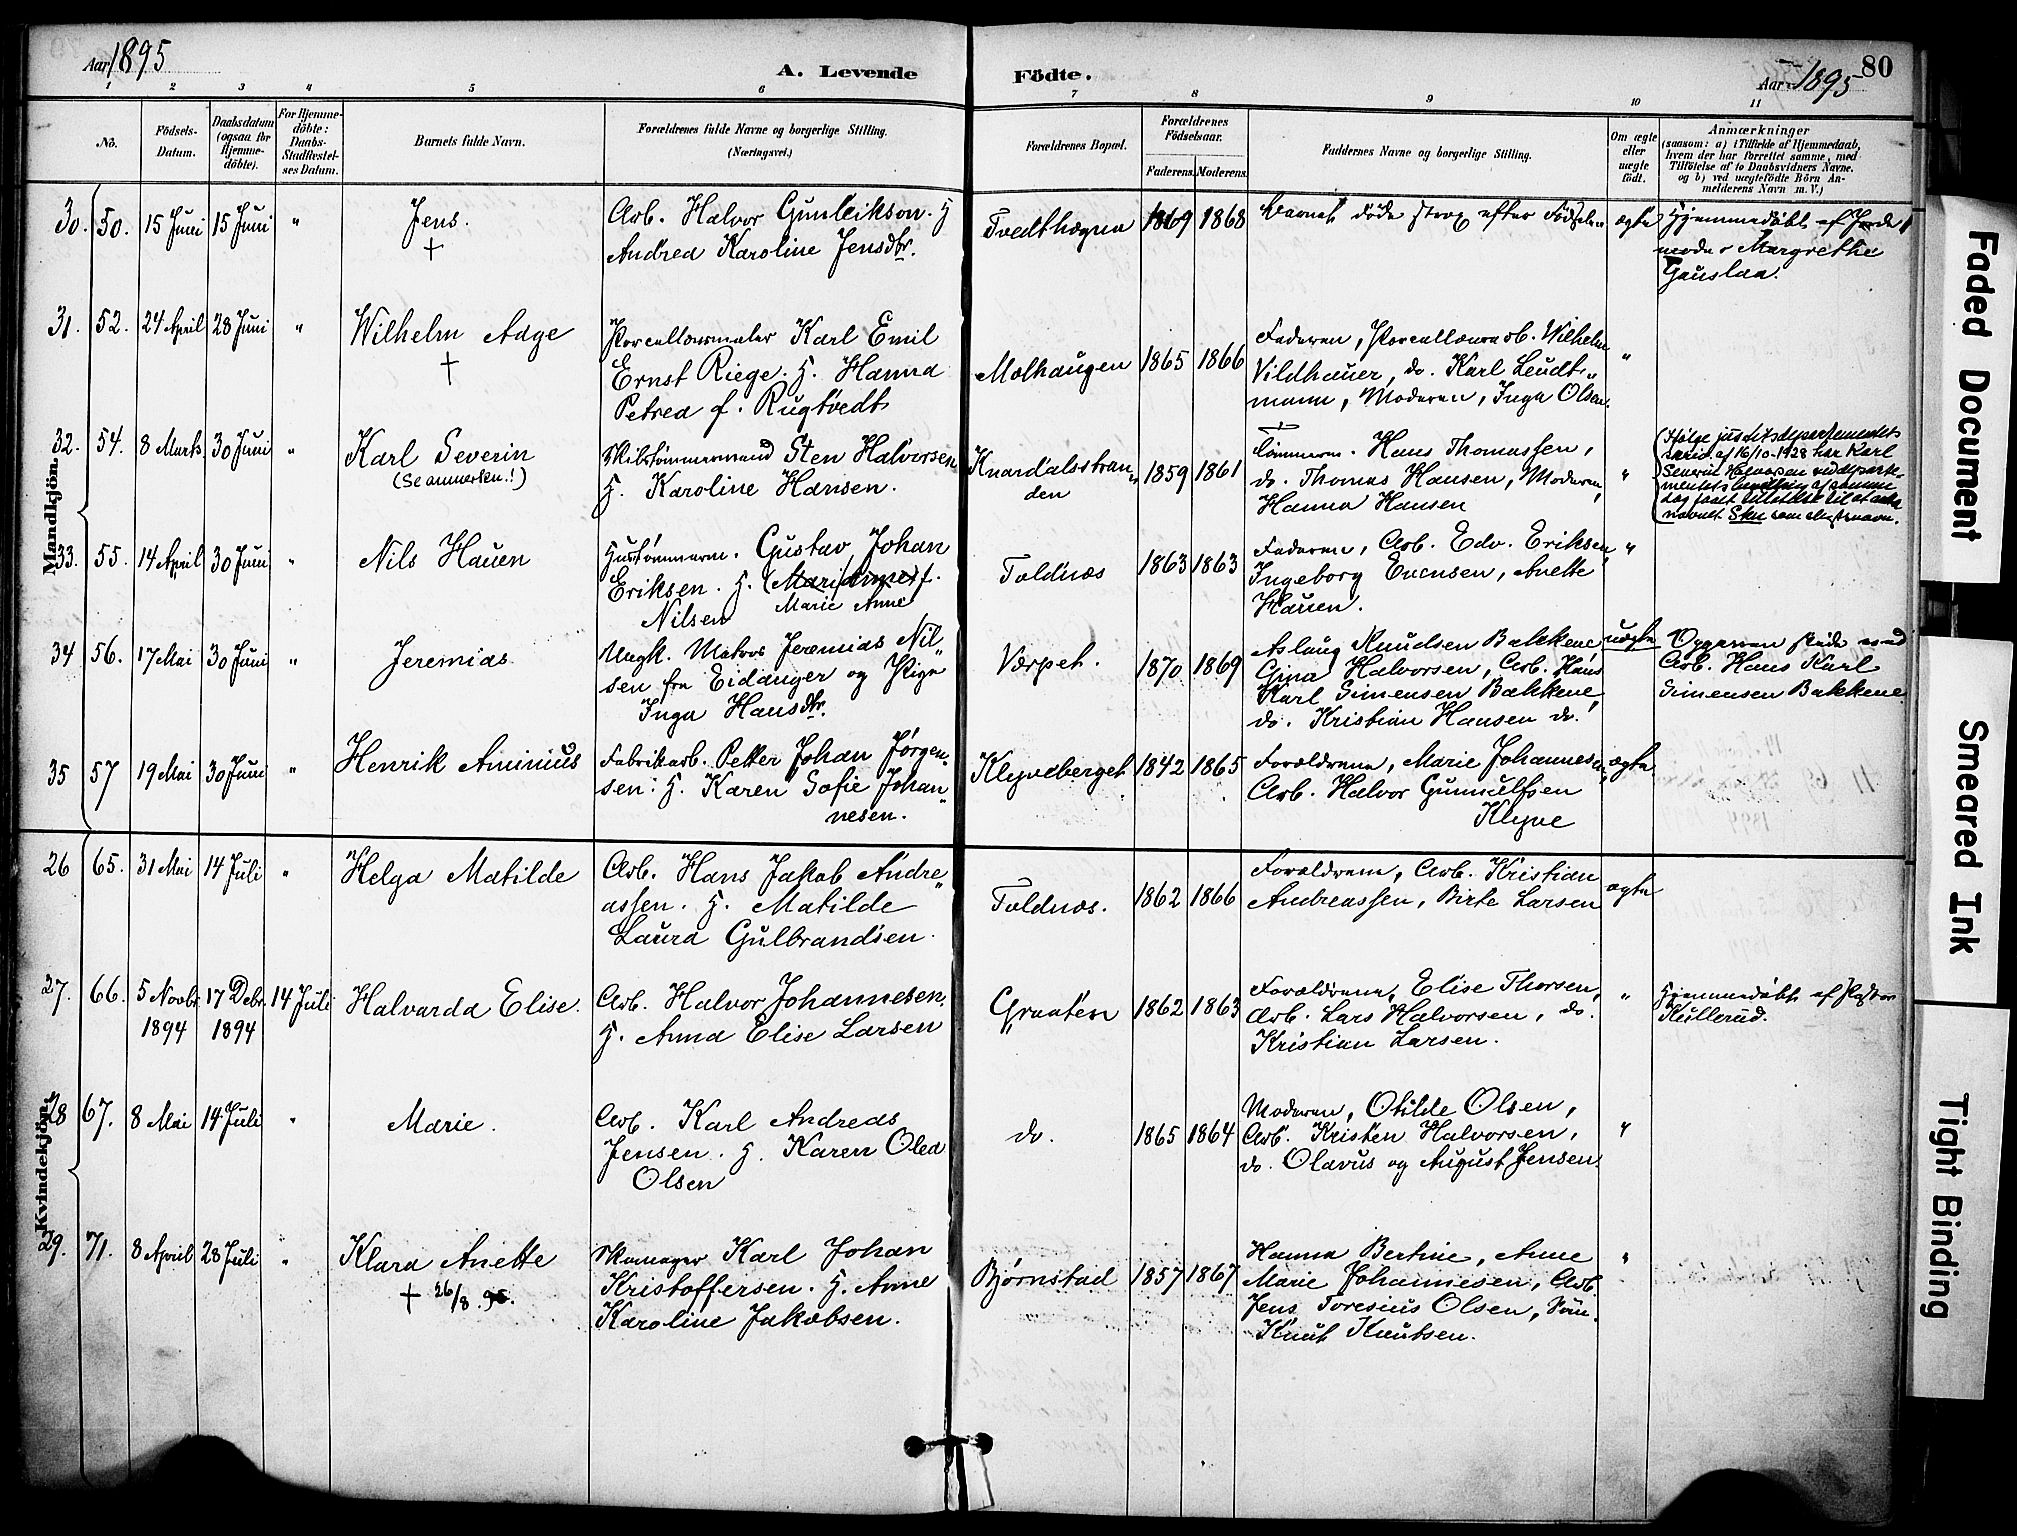 Aar 1895
A. Levende Födte.
Aar 1895
80
1 2 3 4 5 6 7 8 9 10 11
No.
Födsels-Datum.
Daabsdatum (ogsaa for Hjemme-döbte).
For Hjemme-döbte: Daabs-Stadfæstel-ses Datum.
Barnets fulde Navn.
Forældrenes fulde Navne og borgerlige Stilling. (Næringsvei.)
Forældrenes Bopæl.
Forældrenes Födselsaar.
Faderens. Moderens.
Faddernes Navne og borgerlige Stilling.
Om ægte eller uægte födt.
Anmærkninger
(saasom: a) i Tilfælde af Hjemmedaab,
hvem der har forrettet samme, med
Tilföielse af to Daabsvidners Navne.
og b) ved uægtefödte Börn An-
melderens Navn m. V.)
Mandkjön.
30. 50. 15 Juni 15 Juni " Jens. †
Arb. Halvor Gunleikson. H
Andrea Karoline Jensdtr.
Tvedthægna 1869 1868
Barnet döde strax efter Födselen ægte
Hjemmedöbt af Jorde
moder Margrethe
Gauslaa.
31. 52. 24 April 28 Juni " Wilhelm Aage †
Porcellænsmaler Karl Emil
Ernst Riege. H. Hanna
Petrea f. Rugtvedt
Mælhaugen 1865 1866
Faderen, Porcellænsarb. Wilhelm
Vildhauer, do. Karl Leudt-
mann, Moderen, Inga Olsen. "
32. 54. 8 Marts 30 Juni " Karl Severin
(Se anmerkn.!)
Skibstömmermand Sten Halvorsen
H. Karoline Hansen.
Knardalsstran-
den 1859 1861
Tömmerm. Hans Thomassen,
do. Thomas Hansen, Moderen,
Hanna Hansen "
Ifølge justitsdepartementets
skriv af 16/10-1928 har Karl
Severin Halvorsen ved departe-
mentets bevilling af samme
dag faaet tilladelse til at anta
navnet Sten som slegtsnavn.
33. 55. 14 April 30 Juni " Nils Hauen
Hustömmerm. Gustav Johan
Eriksen. H. (Mari Anne) f.
Nilsen Marie Anne
Toldnæs 1863 1863
Faderen, Arb. Edv. Eriksen,
Ingeborg Evensen, Anette
Hauen. "
34 56. 17 Mai 30 Juni " Jeremias
Ungk. Matros Jeremias Nil-
sen fra Eidanger og Pige
Inga Hansdtr.
Værpet. 1870 1869
Aslaug Knudsen Bakkene,
Gina Halvorsen, Arb. Hans
Karl Simensen Bakkene,
do. Kristian Hansen do. uægte
Opgaven skede ved
Arb. Hans Karl
Simensen Bakkene
35 57 19 Mai 30 Juni " Henrik Aminius
Fabrikarb. Petter Johan Jørgen-
sen. H. Karen Sofie Johan-
nesen.
Klyveberget 1842 1865
Forældrene, Marie Johannesen,
Arb. Halvor Gunnulfsen
Klyve ægte
Kvindekjön.
26 65. 31 Mai 14 Juli " Helga Matilde
Arb. Hans Jakob Andre-
assen. H. Matilde
Laura Gulbrandsen.
Toldnæs. 1862 1866
Forældrene, Arb. Kristian
Andreassen, Birte Larsen ægte
27. 66. 5 Novbr 1894 17 Debr. 1894 14 Juli Halvarda Elise.
Arb. Halvor Johannesen.
H. Anna Elise Larsen
Graaten 1862 1863
Forældrene, Elise Thorsen,
Arb. Lars Halvorsen, do.
Kristian Larsen. "
Hjemmedöbt af Pastor
Kullerud.
28 67. 8 Mai 14 Juli " Marie.
Arb. Karl Andreas
Jensen. H. Karen Olea
Olsen
do. 1865 1864
Moderen, Otilde Olsen,
Arb. Kristen Halvorsen,
do. Olavus og August Jensen. "
29. 71. 8 April 28 Juli " Klara Anette
† 26/8. 95.
Skomager Karl Johan
Kristoffersen. H. Anne
Karoline Jakobsen.
Bjørnstad 1857 1867
Hanna Bertine, Anne
Marie Johannesen, Arb.
Jens Toresius Olsen, Søm.
Knut Knutsen. "
Faded Document
Smeared Ink
Tight Binding